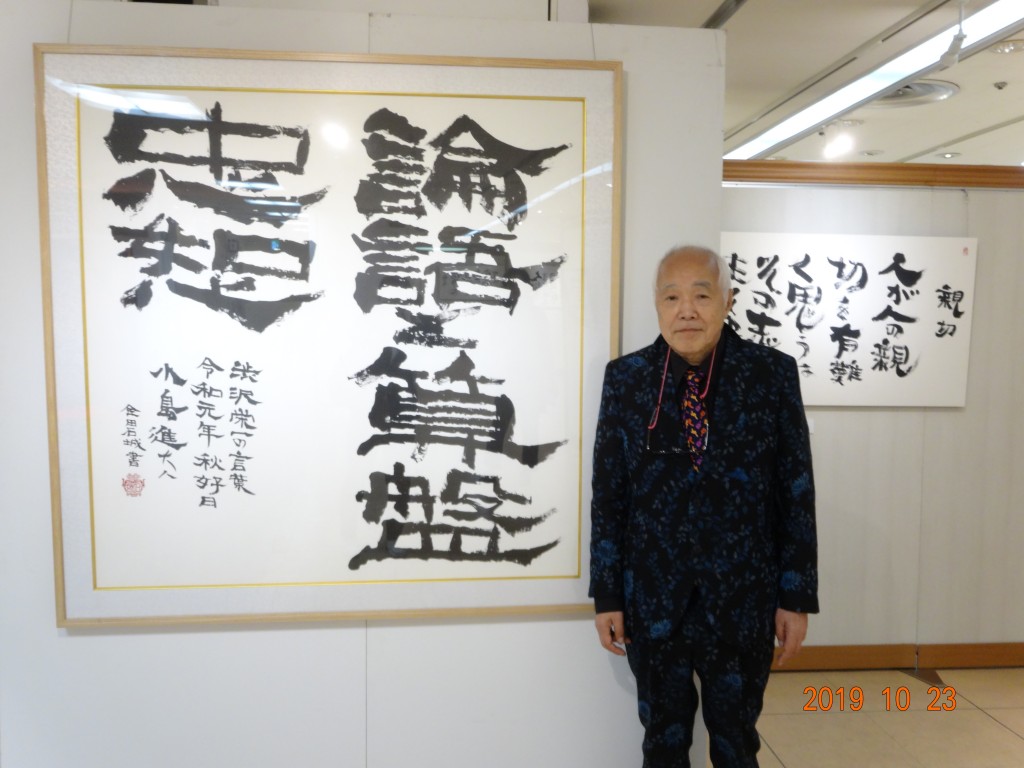 論語と算盤
忠恕
渋沢栄一の言葉
令和元年 秋好日
小島進大人
金田石城書
親切
人が人の親
切を有難
く思うは
その
2019 10 23